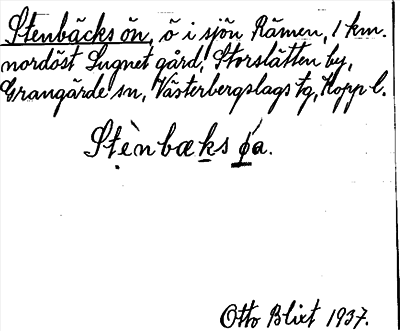 Stenbäcks ön, ö i sjön Rämen, 1 km.
nordöst Lugnet gård, Storslätten by,
Grangärde sn, Västerbergslags tg, Kopp l.
Stẹ̀nbæks øa.
Otto Blixt 1937.